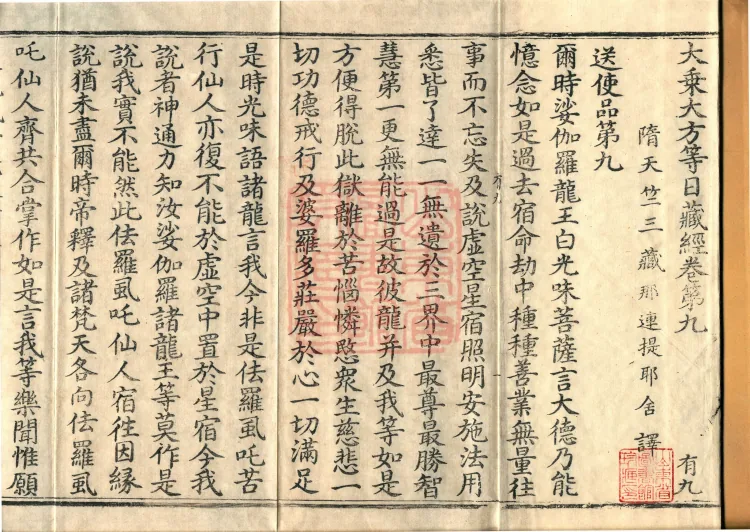 大乗大方等日藏經卷第九
有九
隋天竺三藏那連提耶舍譯
送使品第九
爾時娑伽羅龍王白光味菩薩言大德乃能
憶念如是過去宿命劫中種種善業無量往
事而不忘失及說虛空星宿照明安施法用
悉皆了達一一無遺於三界中最尊最勝智
慧第一更無能過是故彼龍并及我等如是
方便得脫此獄離於苦惱憐愍衆生慈悲一
切功德戒行及婆羅多莊嚴於心一切滿足
是時光味語諸龍言我今非是佉羅虱吒苦
行仙人亦復不能於虛空中置於星宿今我
說者神通力知汝娑伽羅諸龍王等莫作是
說我實不能然此佉羅虱吒仙人宿往因緣
說猶未盡爾時帝釋及諸梵天各向佉羅虱
吒仙人齊共合掌作如是言我等樂聞惟願